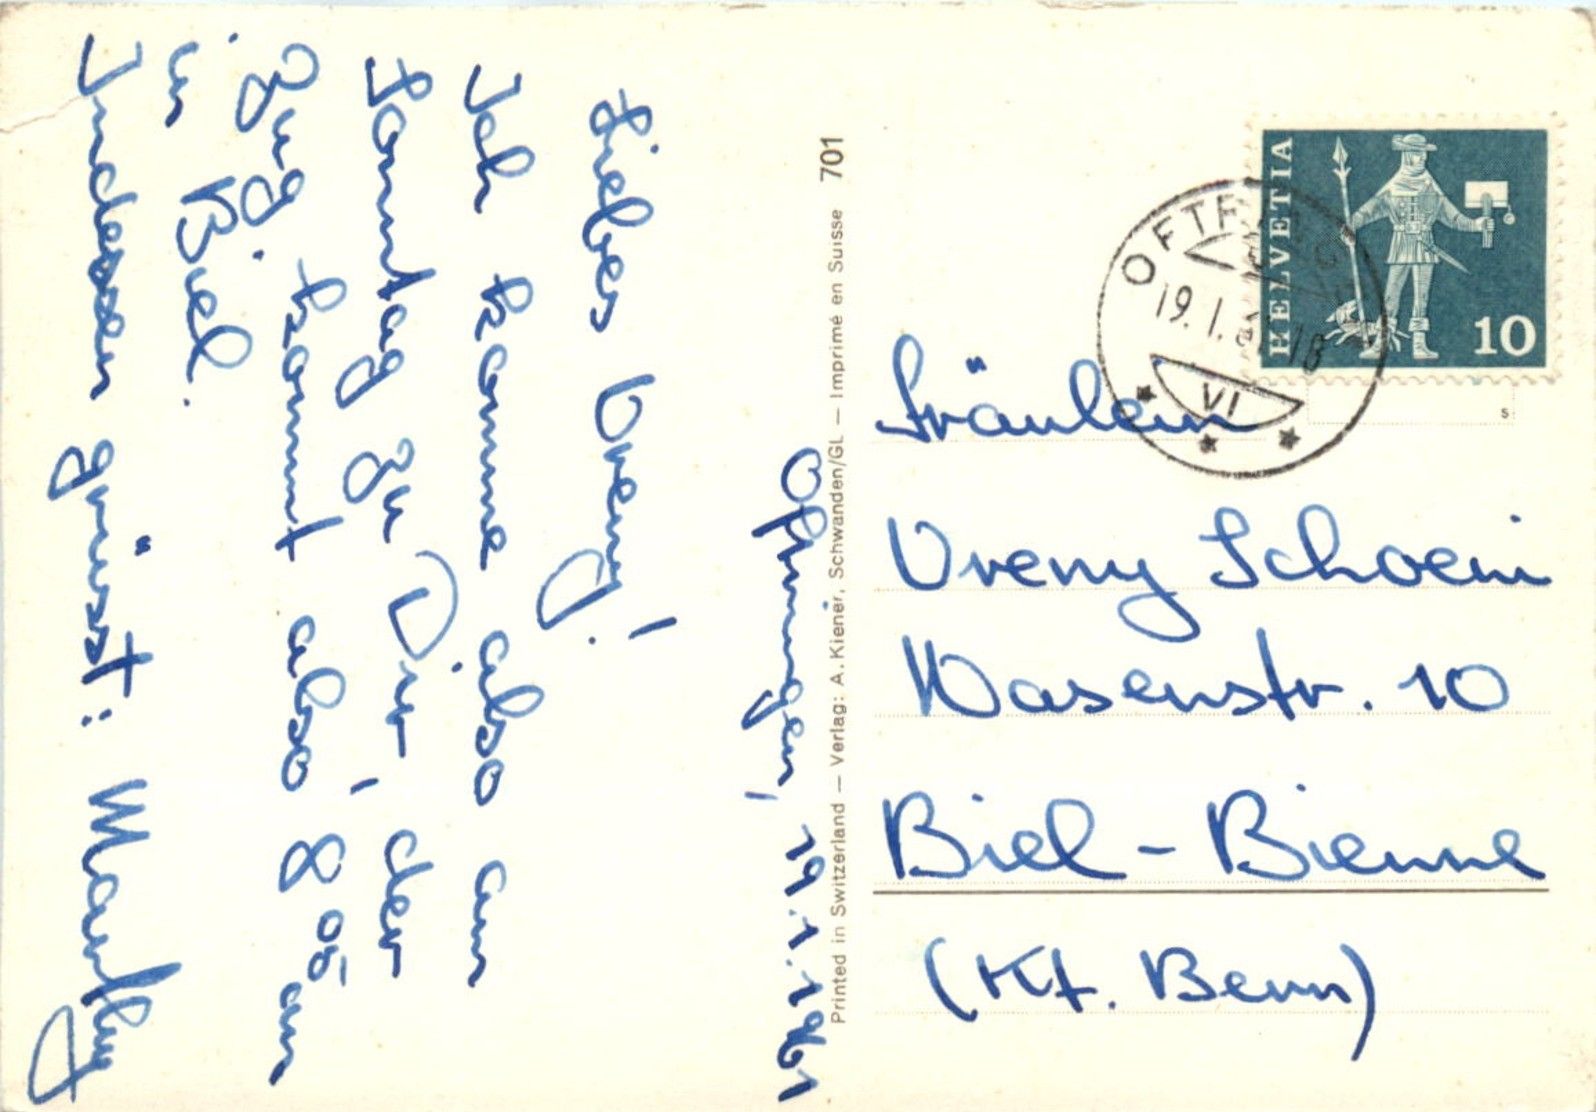 Oftringen, 19.1.1961
Liebes Vreny!
Ich komme also am
Sonntag zu Dir, der
Zug kommt also 8 05 an
in Biel.
Indessen grüsst:
Printed in Switzerland — Verlag: A. Kiener, Schwanden/GL — Imprimé en Suisse 701
HELVETIA
10
OFTRINGEN
19.1. 18
VI
S
Fräulein
Vreny Schoeni
Wasenstr. 10
Biel - Bienne
(Kt. Bern)